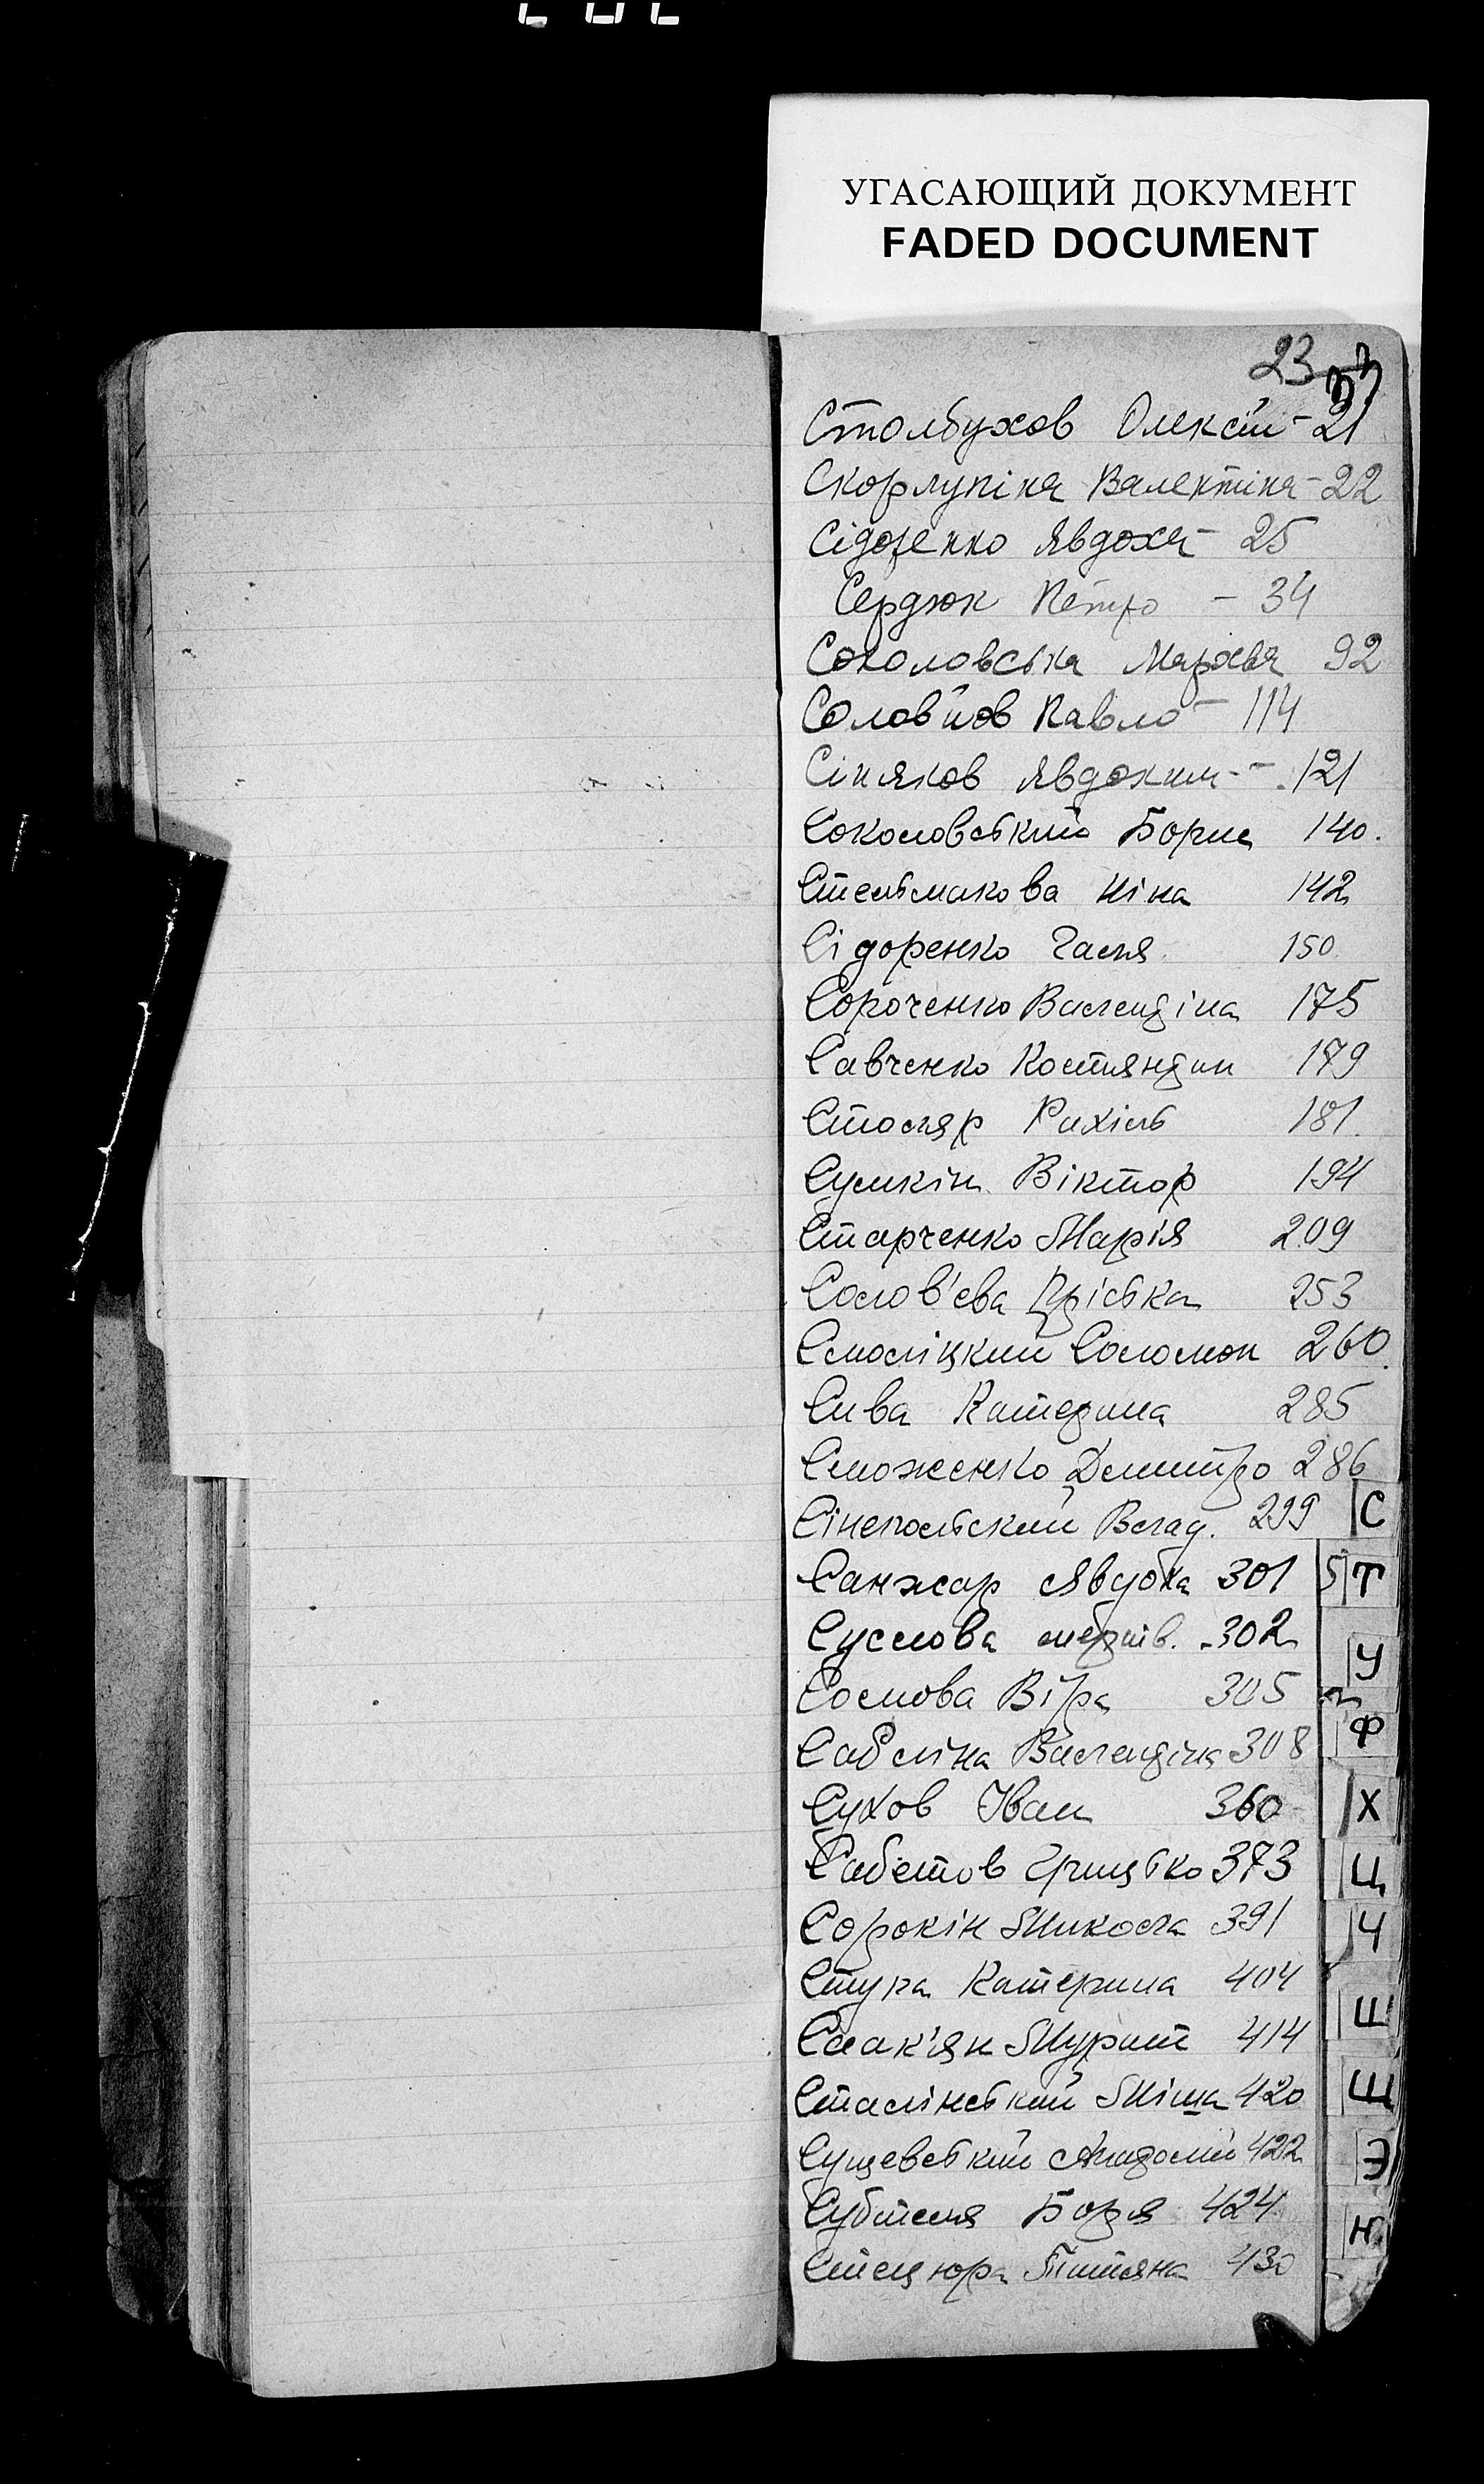 УГАСАЮЩИЙ ДОКУМЕНТ
FADED DOCUMENT
23
Столбухов Олексій - 21
Скорлупіна Валентіна - 22
Сідоренко Явдоха - 25
Сердюк Петро - 34
Соколовська Мархва 92
Соловйов Павло - 114
Сіняков Явдоким - 121
Соколовський Борис 140.
Стельмахова Ніна 142
Сідоренко Галя 150
Сороченко Валендіна 175
Савченко Костяндин 179
Столяр Рихіль 181
Сумкін Віктор 194
Старченко Марія 209
Солов'єва Пріська 253
Смоліцкий Соломон 260.
Сива Катерина 285
Сможенко Дмитро 286
Сінепольский Влад. 299
Санжар Явдоха 301
Суслова 302
Сомова Віра 305
Сабліна Валендіна 308
Сухов Іван 360
Сабетов Грицько 373
Сорокін Микола 391
Стука Катерина 404
Саак'ян Мурат 414
Сталінський Міша 420
Сущевський Анатолій 422
Субтеля Боря 424
Стецюра Титяна 430
С
Т
У
Ф
Х
Ц
Ч
Ш
Щ
Э
Н